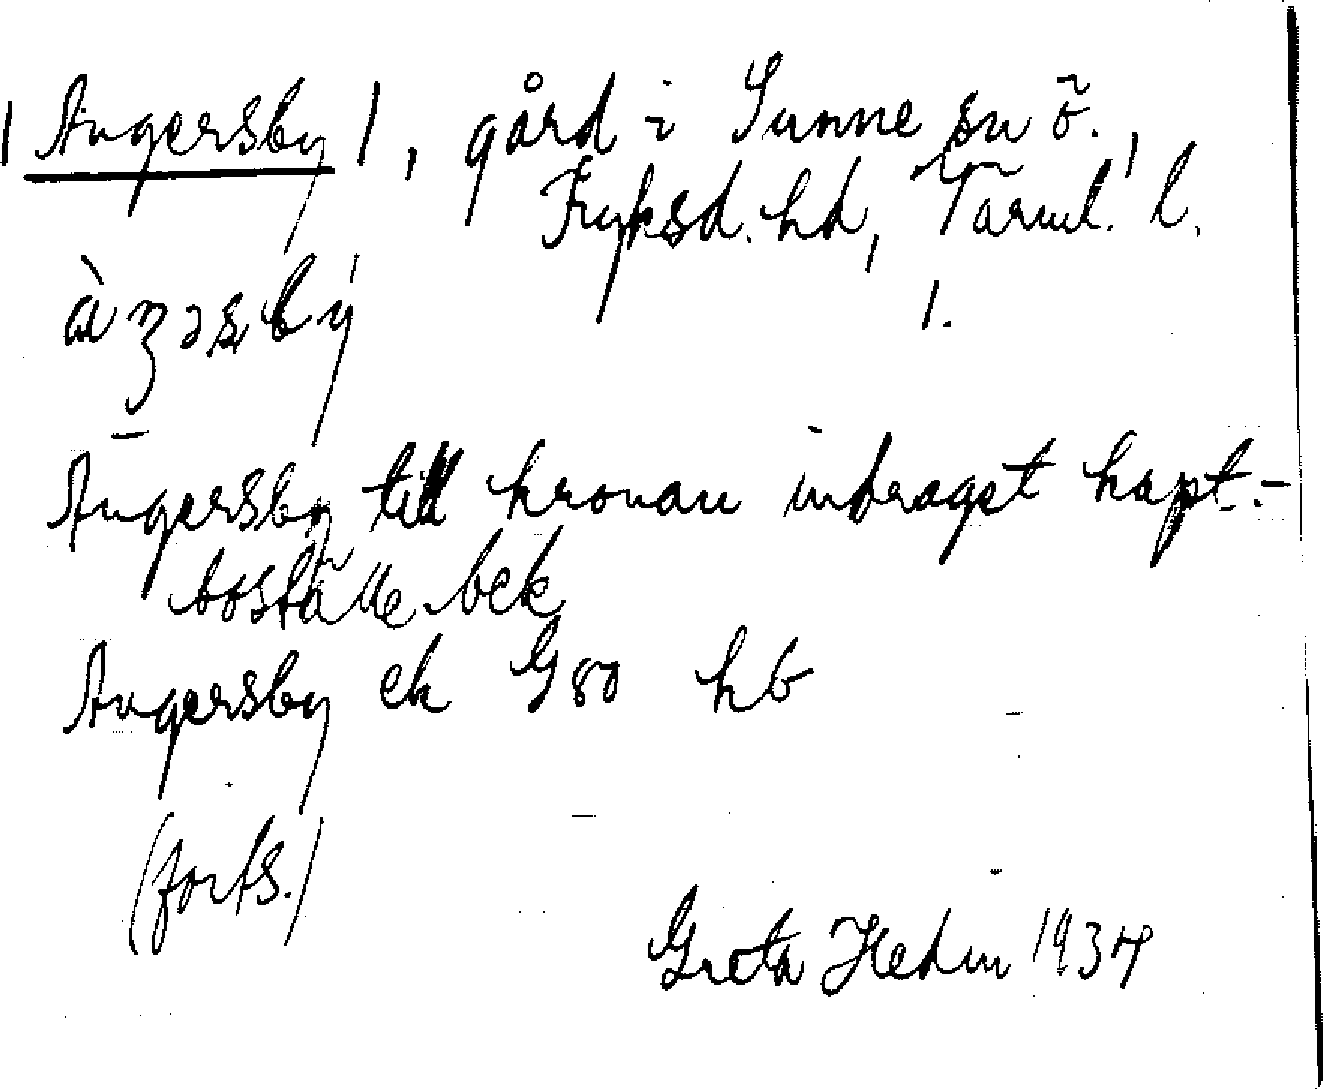 /Angersby/, gård i Sunne sn ö.,
Fryksd. hd, Värml. l.
1.
Angersby till kronan indraget kapt.-
boställe bek
Angersby ek G80 hb
(forts.)
Greta Hedin 1934